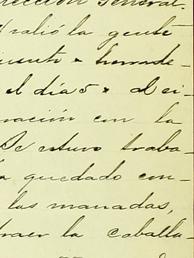 rección General
salió la gente
el día 5
ración con la
Se estuvo traba-
a quedado con-
las manadas,
traer la caballa-